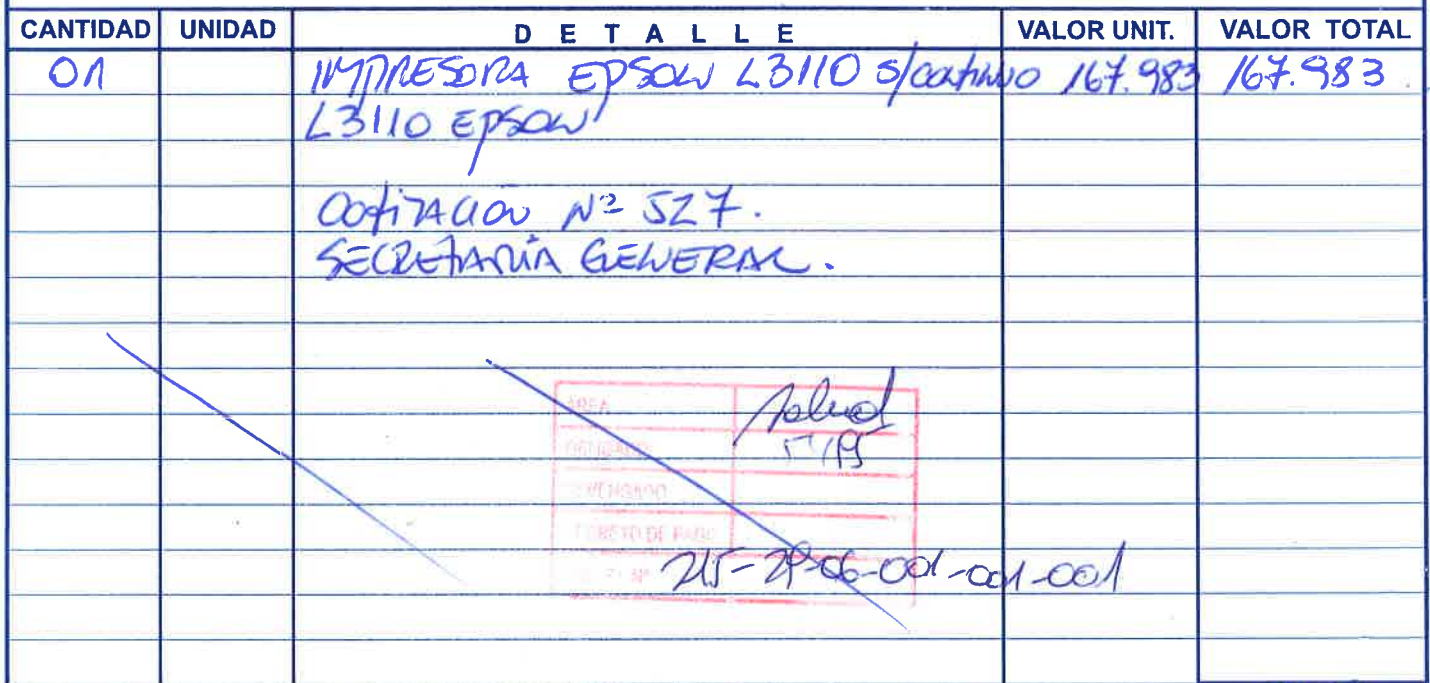 CANTIDAD UNIDAD DETALLE VALOR UNIT. VALOR TOTAL
01 IMPRESORA EPSON L3110 S/continuo 167.983 167.983
L3110 EPSON
Cotización Nº 527.
SECRETARÍA GENERAL.
AREA Salud
OBLIGADO
DEVENGADO
DECRETO DE PAGO
215-29-06-001-001-001